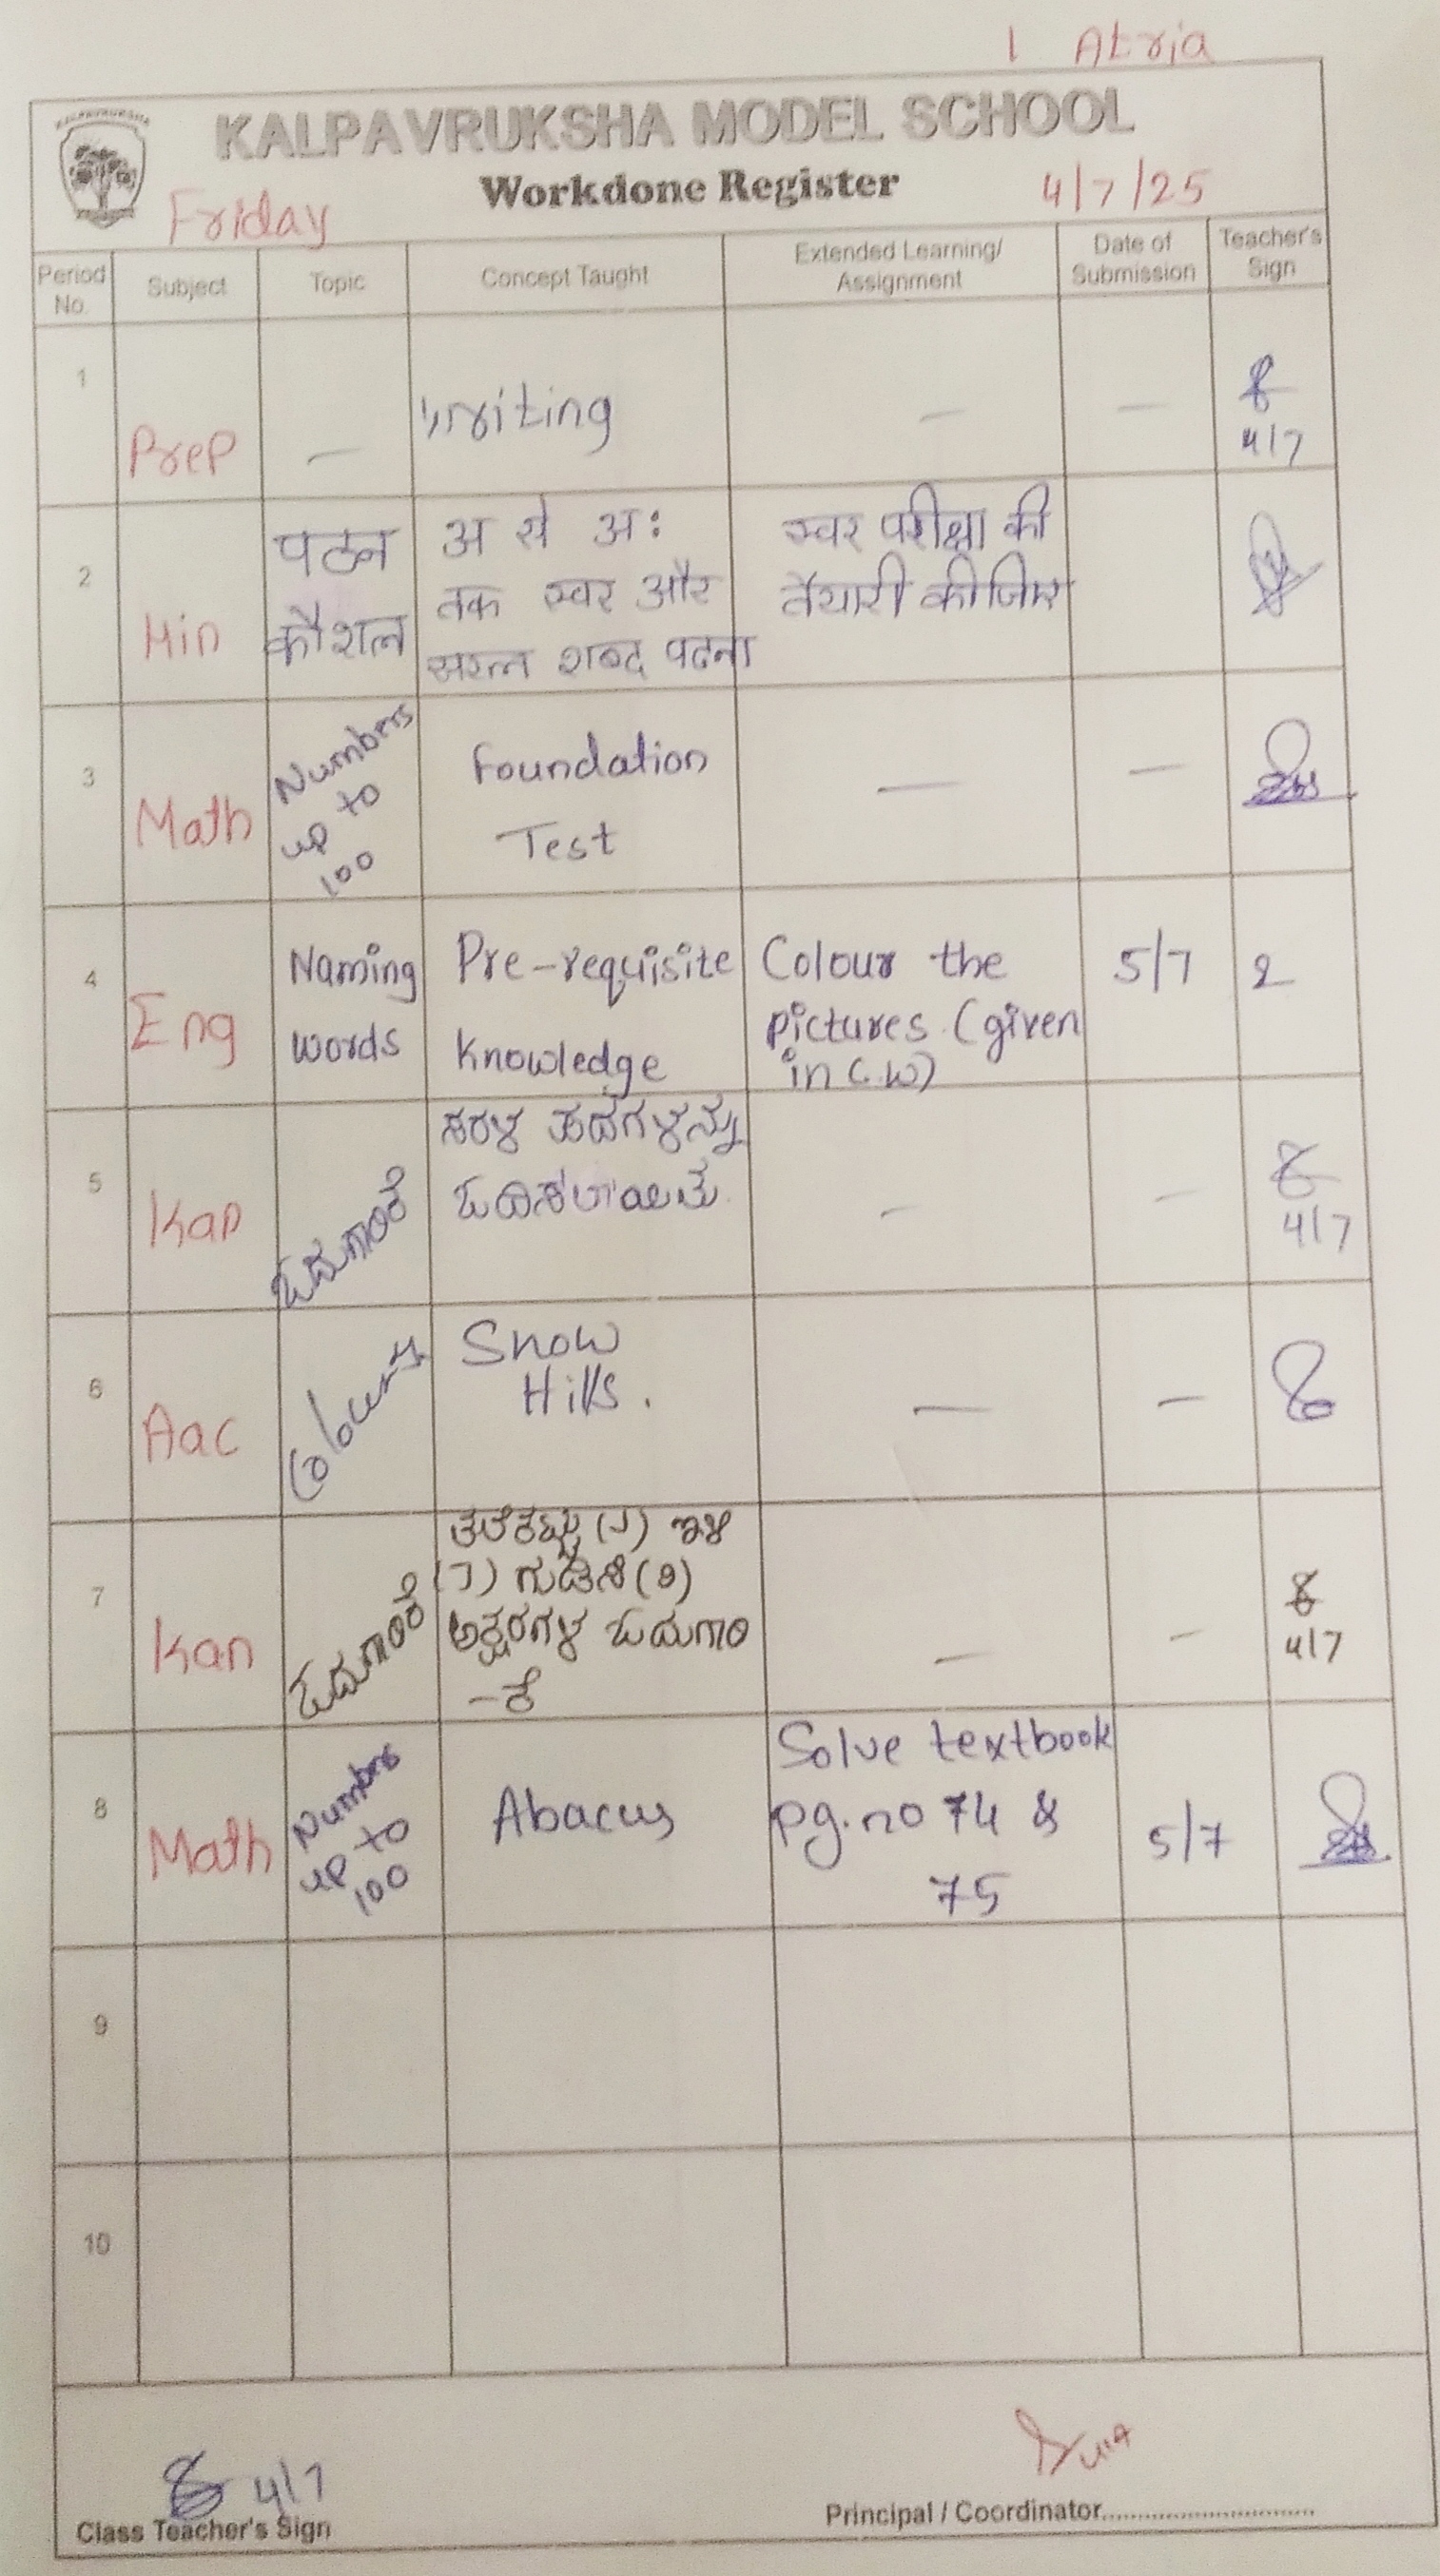 1 Atria
KALPAVRUKSHA
KALPAVRUKSHA MODEL SCHOOL
Workdone Register
Friday
4/7/25
Period No.
Subject
Topic
Concept Taught
Extended Learning/
Assignment
Date of
Submission
Teacher's
Sign
1
Prep
—
Writing
—
—
4/7
2
Hin
पठन
कौशल
अ से अः
तक स्वर और
सरल शब्द पढना
स्वर परीक्षा की
तैयारी कीजिए
3
Math
Numbers
up to
100
Foundation
Test
—
—
4
Eng
Naming
words
Pre-requisite
Knowledge
Colour the
pictures. (given
in C.W)
5/7
5
Kan
ಓದುಗಾರಿಕೆ
ಸರಳ ಪದಗಳನ್ನು
ಓದಿಸಲಾಯಿತು.
—
—
4/7
6
Aac
Colouring
Snow
Hills.
—
—
7
Kan
ಓದುಗಾರಿಕೆ
ತಲೆಕಟ್ಟು (
) ಇಳಿ
) ಗುಡಿಸು (
)
ಅಕ್ಷರಗಳ ಓದುಗಾರಿ
-ಕೆ
—
—
4/7
8
Math
Numbers
up to
100
Abacus
Solve textbook
pg.no 74 &
75
5/7
9
10
4/7
Class Teacher's Sign
Principal / Coordinator..............................